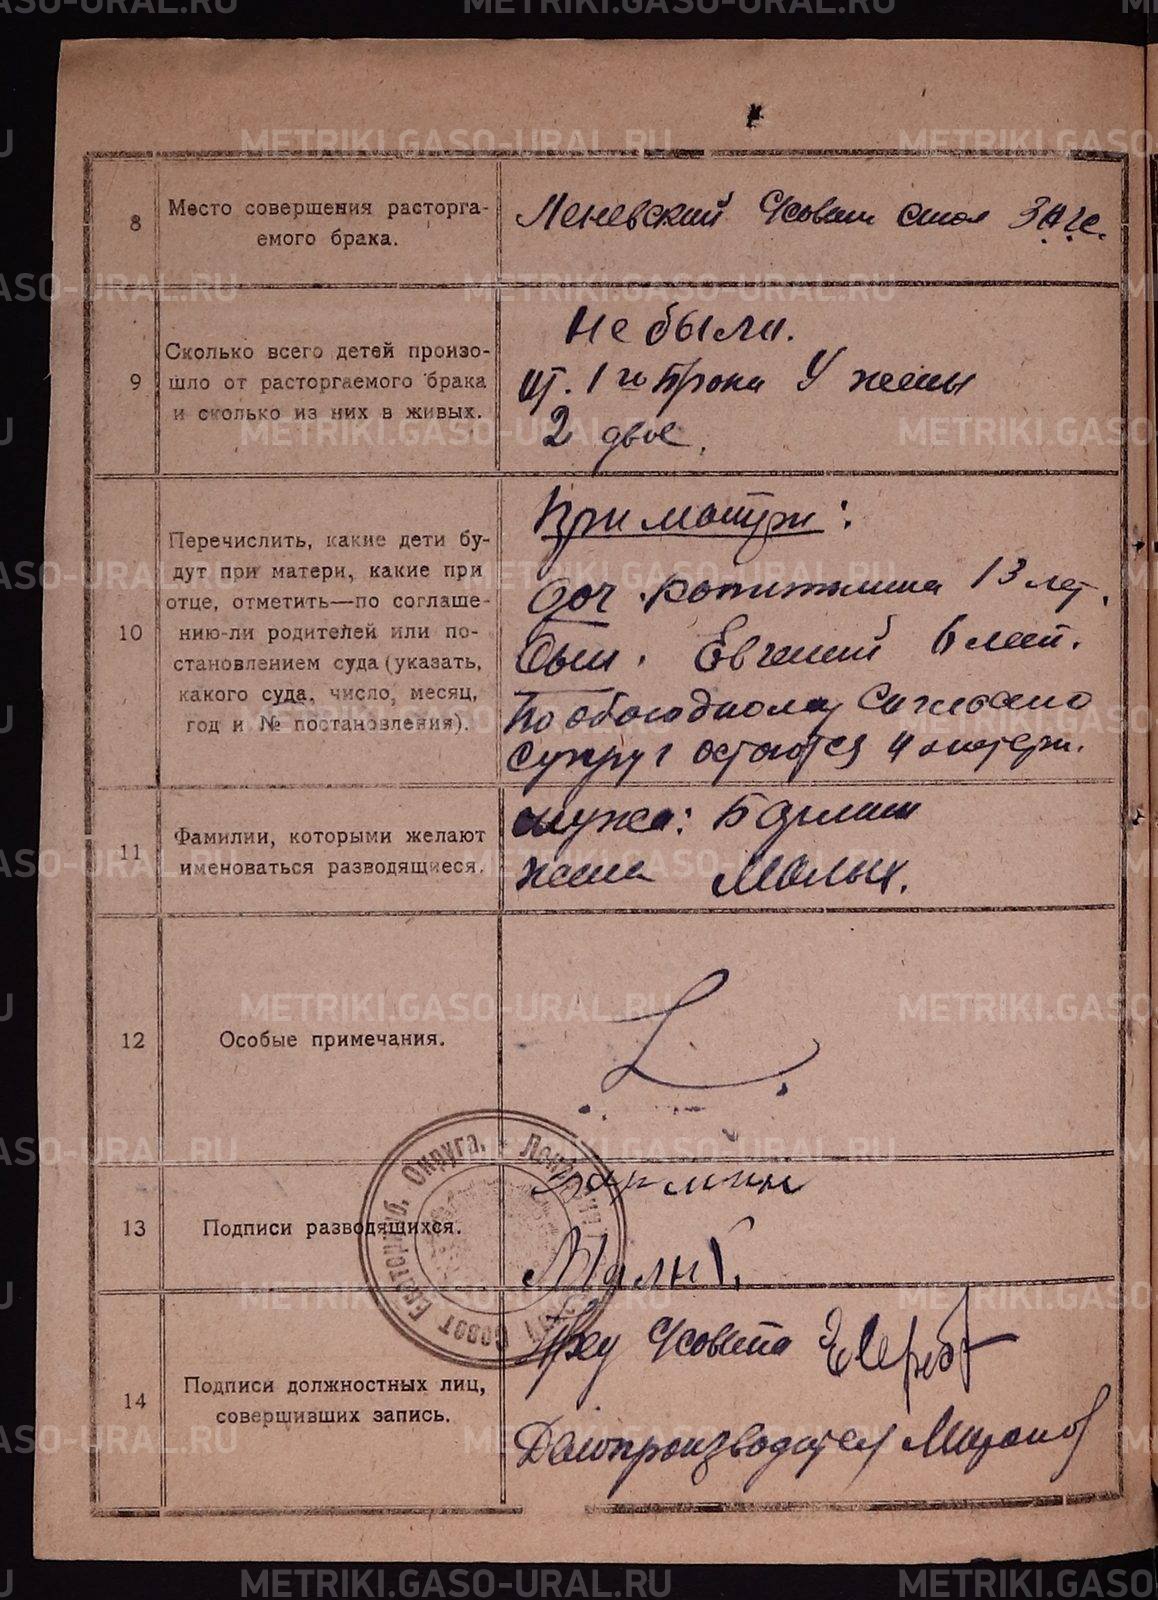 METRIKI.GASO-URAL.RU
8
Место совершения расторга-
емого брака.
Леневский с/совет стол ЗАГС.
9
Сколько всего детей произо-
шло от расторгаемого брака
и сколько из них в живых.
Не были.
от. 1го брака У жены
2 двое.
10
Перечислить, какие дети бу-
дут при матери, какие при
отце, отметить—по соглаше-
нию-ли родителей или по-
становлением суда (указать,
какого суда, число, месяц,
год и № постановления).
При матери:
доч. 13 лет.
Сын. Евгений 6 лет.
По обоюдному
супруг остаются у матери.
11
Фамилии, которыми желают
именоваться разводящиеся.
мужа:
жена Малых.
12
Особые примечания.
13
Подписи разводящихся.
Малых.
14
Подписи должностных лиц,
совершивших запись.
Пред с/совета
Делопроизводител
Округа.
Совет